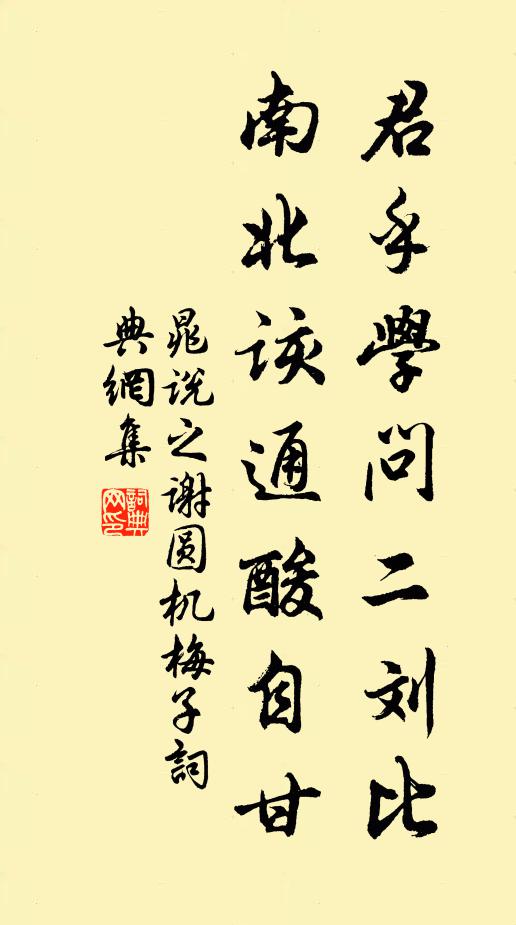 君乎學问二刘比
南北該通酸自甘
晁说之谢圆机梅子詞
典網集
詞典网印